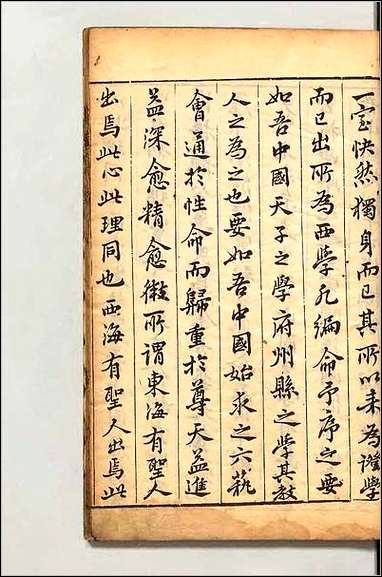 一室怏然獨身而已其所以來為譔學
而已出所為西學九編命予序之要
如吾中國天子之學府州縣之學其教
人之為之也要如吾中國始求之六藝
會通於性命而歸重於尊天益進
益深愈精愈微所謂東海有聖人
出焉此心此理同也西海有聖人出焉此